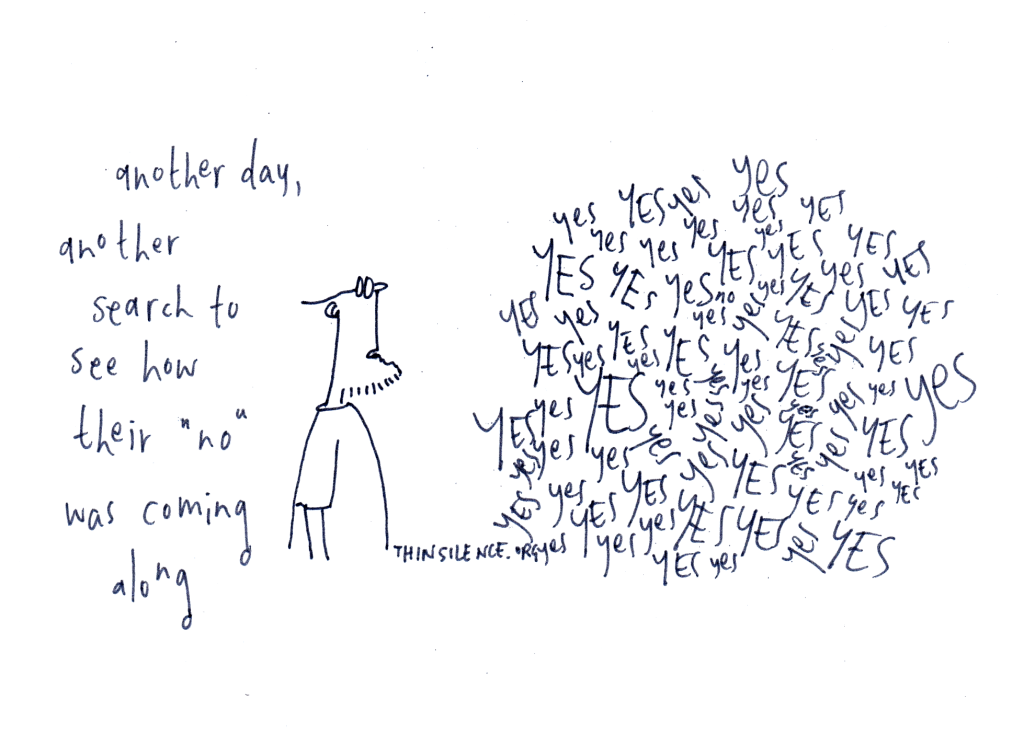 another day,
another
search to
see how
their "no"
was coming
along
THINSILENCE.ORG
yes
yes YES yes
yes yes YES
yes yes yes
YES YES YES
YES YES yes no yes YES yes YES
YES yes yes yes YES YES
YES yes YES yes YES yes YES yes yes YES
yes YES yes yes yes yes YES yes yes yes
YES yes yes yes yes yes YES yes YES
yes yes yes yes YES yes yes YES
YES yes YES YES yes YES yes YES
yes yes yes YES YES yes YES
YES yes